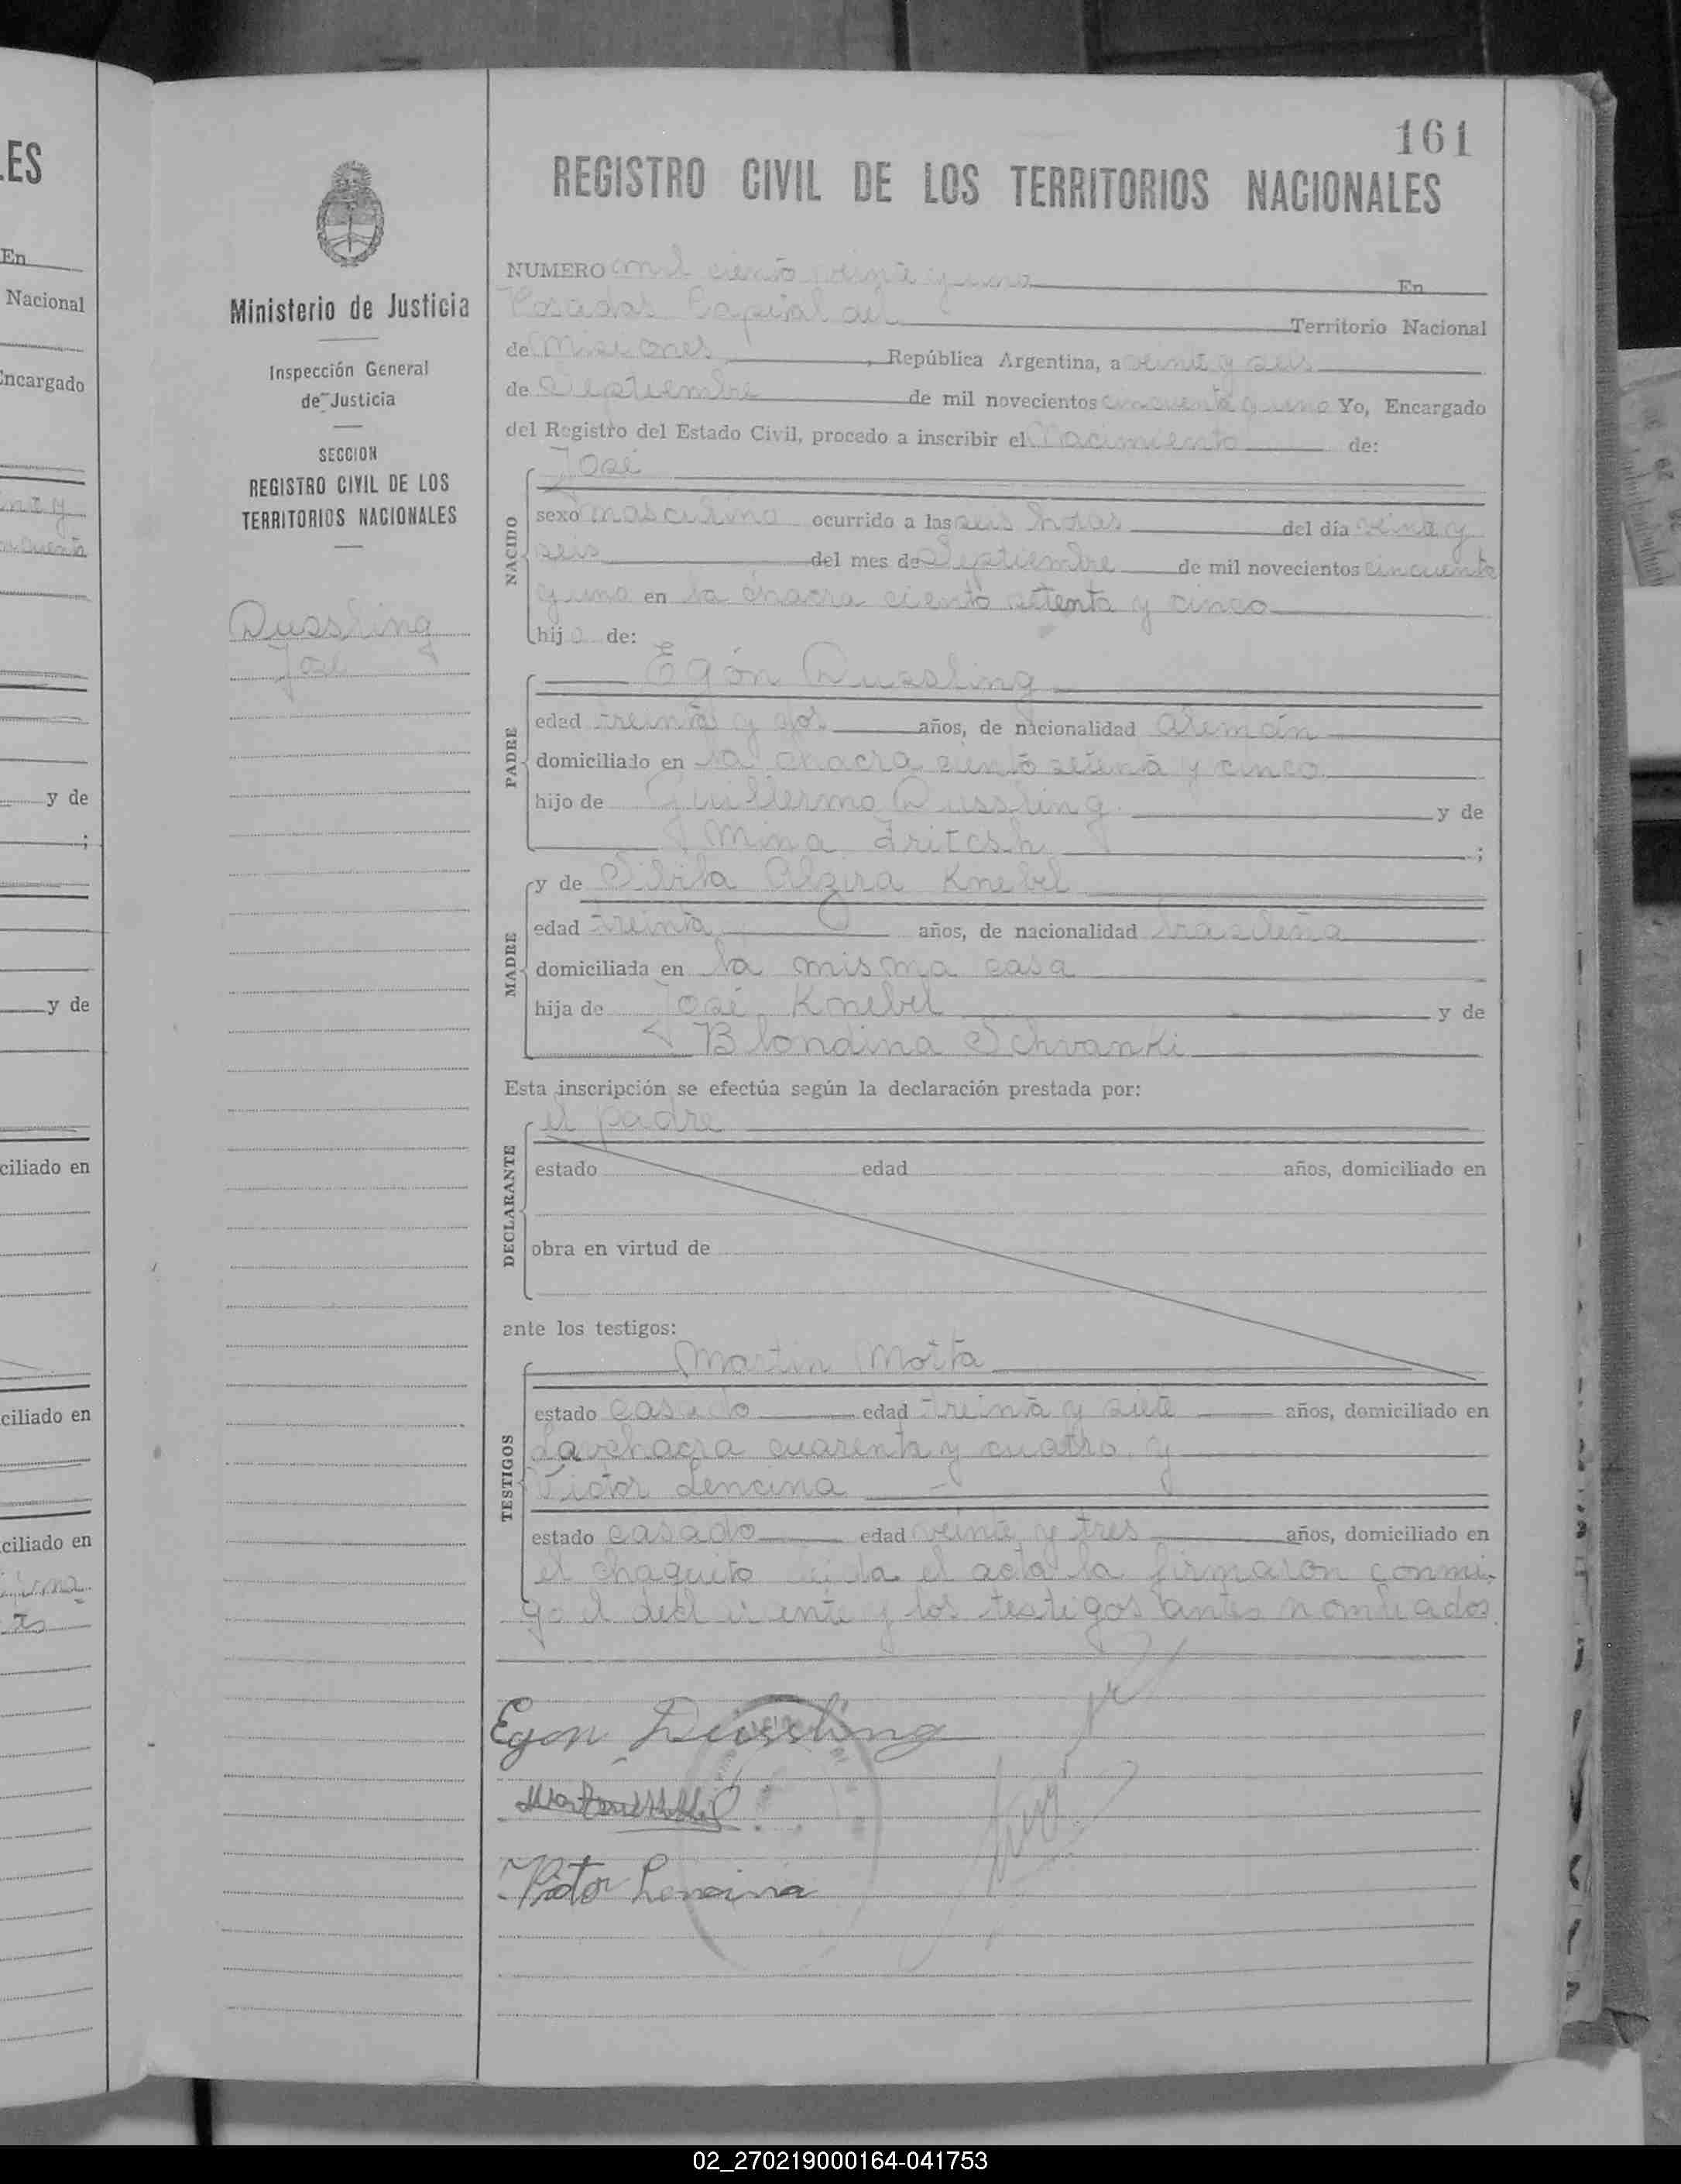 161
REGISTRO CIVIL DE LOS TERRITORIOS NACIONALES
Ministerio de Justicia
Inspección General
de Justicia
SECCION
REGISTRO CIVIL DE LOS
TERRITORIOS NACIONALES
Dussling
José
NUMERO mil ciento veinte y uno En
Posadas Capital del Territorio Nacional
de Misiones, República Argentina, a veinte y seis
de Septiembre de mil novecientos cincuenta y uno Yo, Encargado
del Registro del Estado Civil, procedo a inscribir el Nacimiento de:
José
NACIDO
sexo masculino ocurrido a las seis horas del día veinte y
seis del mes de Septiembre de mil novecientos cincuenta
y uno en la chacra ciento setenta y cinco
hijo de:
Egón Dussling
PADRE
edad treinta y dos años, de nacionalidad alemán
domiciliado en la chacra ciento setenta y cinco
hijo de Guillermo Dussling y de
Mina Fritcsh ;
MADRE
y de Silita Alzira Knebel
edad treinta años, de nacionalidad brasileña
domiciliada en la misma casa
hija de José Knebel y de
Blondina Schvanki
Esta inscripción se efectúa según la declaración prestada por:
el padre
DECLARANTE
estado edad años, domiciliado en
obra en virtud de
ante los testigos:
Martin Motta
TESTIGOS
estado casado edad treinta y siete años, domiciliado en
La chacra cuarenta y cuatro y
Victor Lencina
estado casado edad veinte y tres años, domiciliado en
el chaquito leida el acta la firmaron conmi-
go el declarante y los testigos antes nombrados
Egon Dussling
Victor Lencina
ES
En
Nacional
Encargado
y de
;
y de
ciliado en
ciliado en
ciliado en
02_270219000164-041753